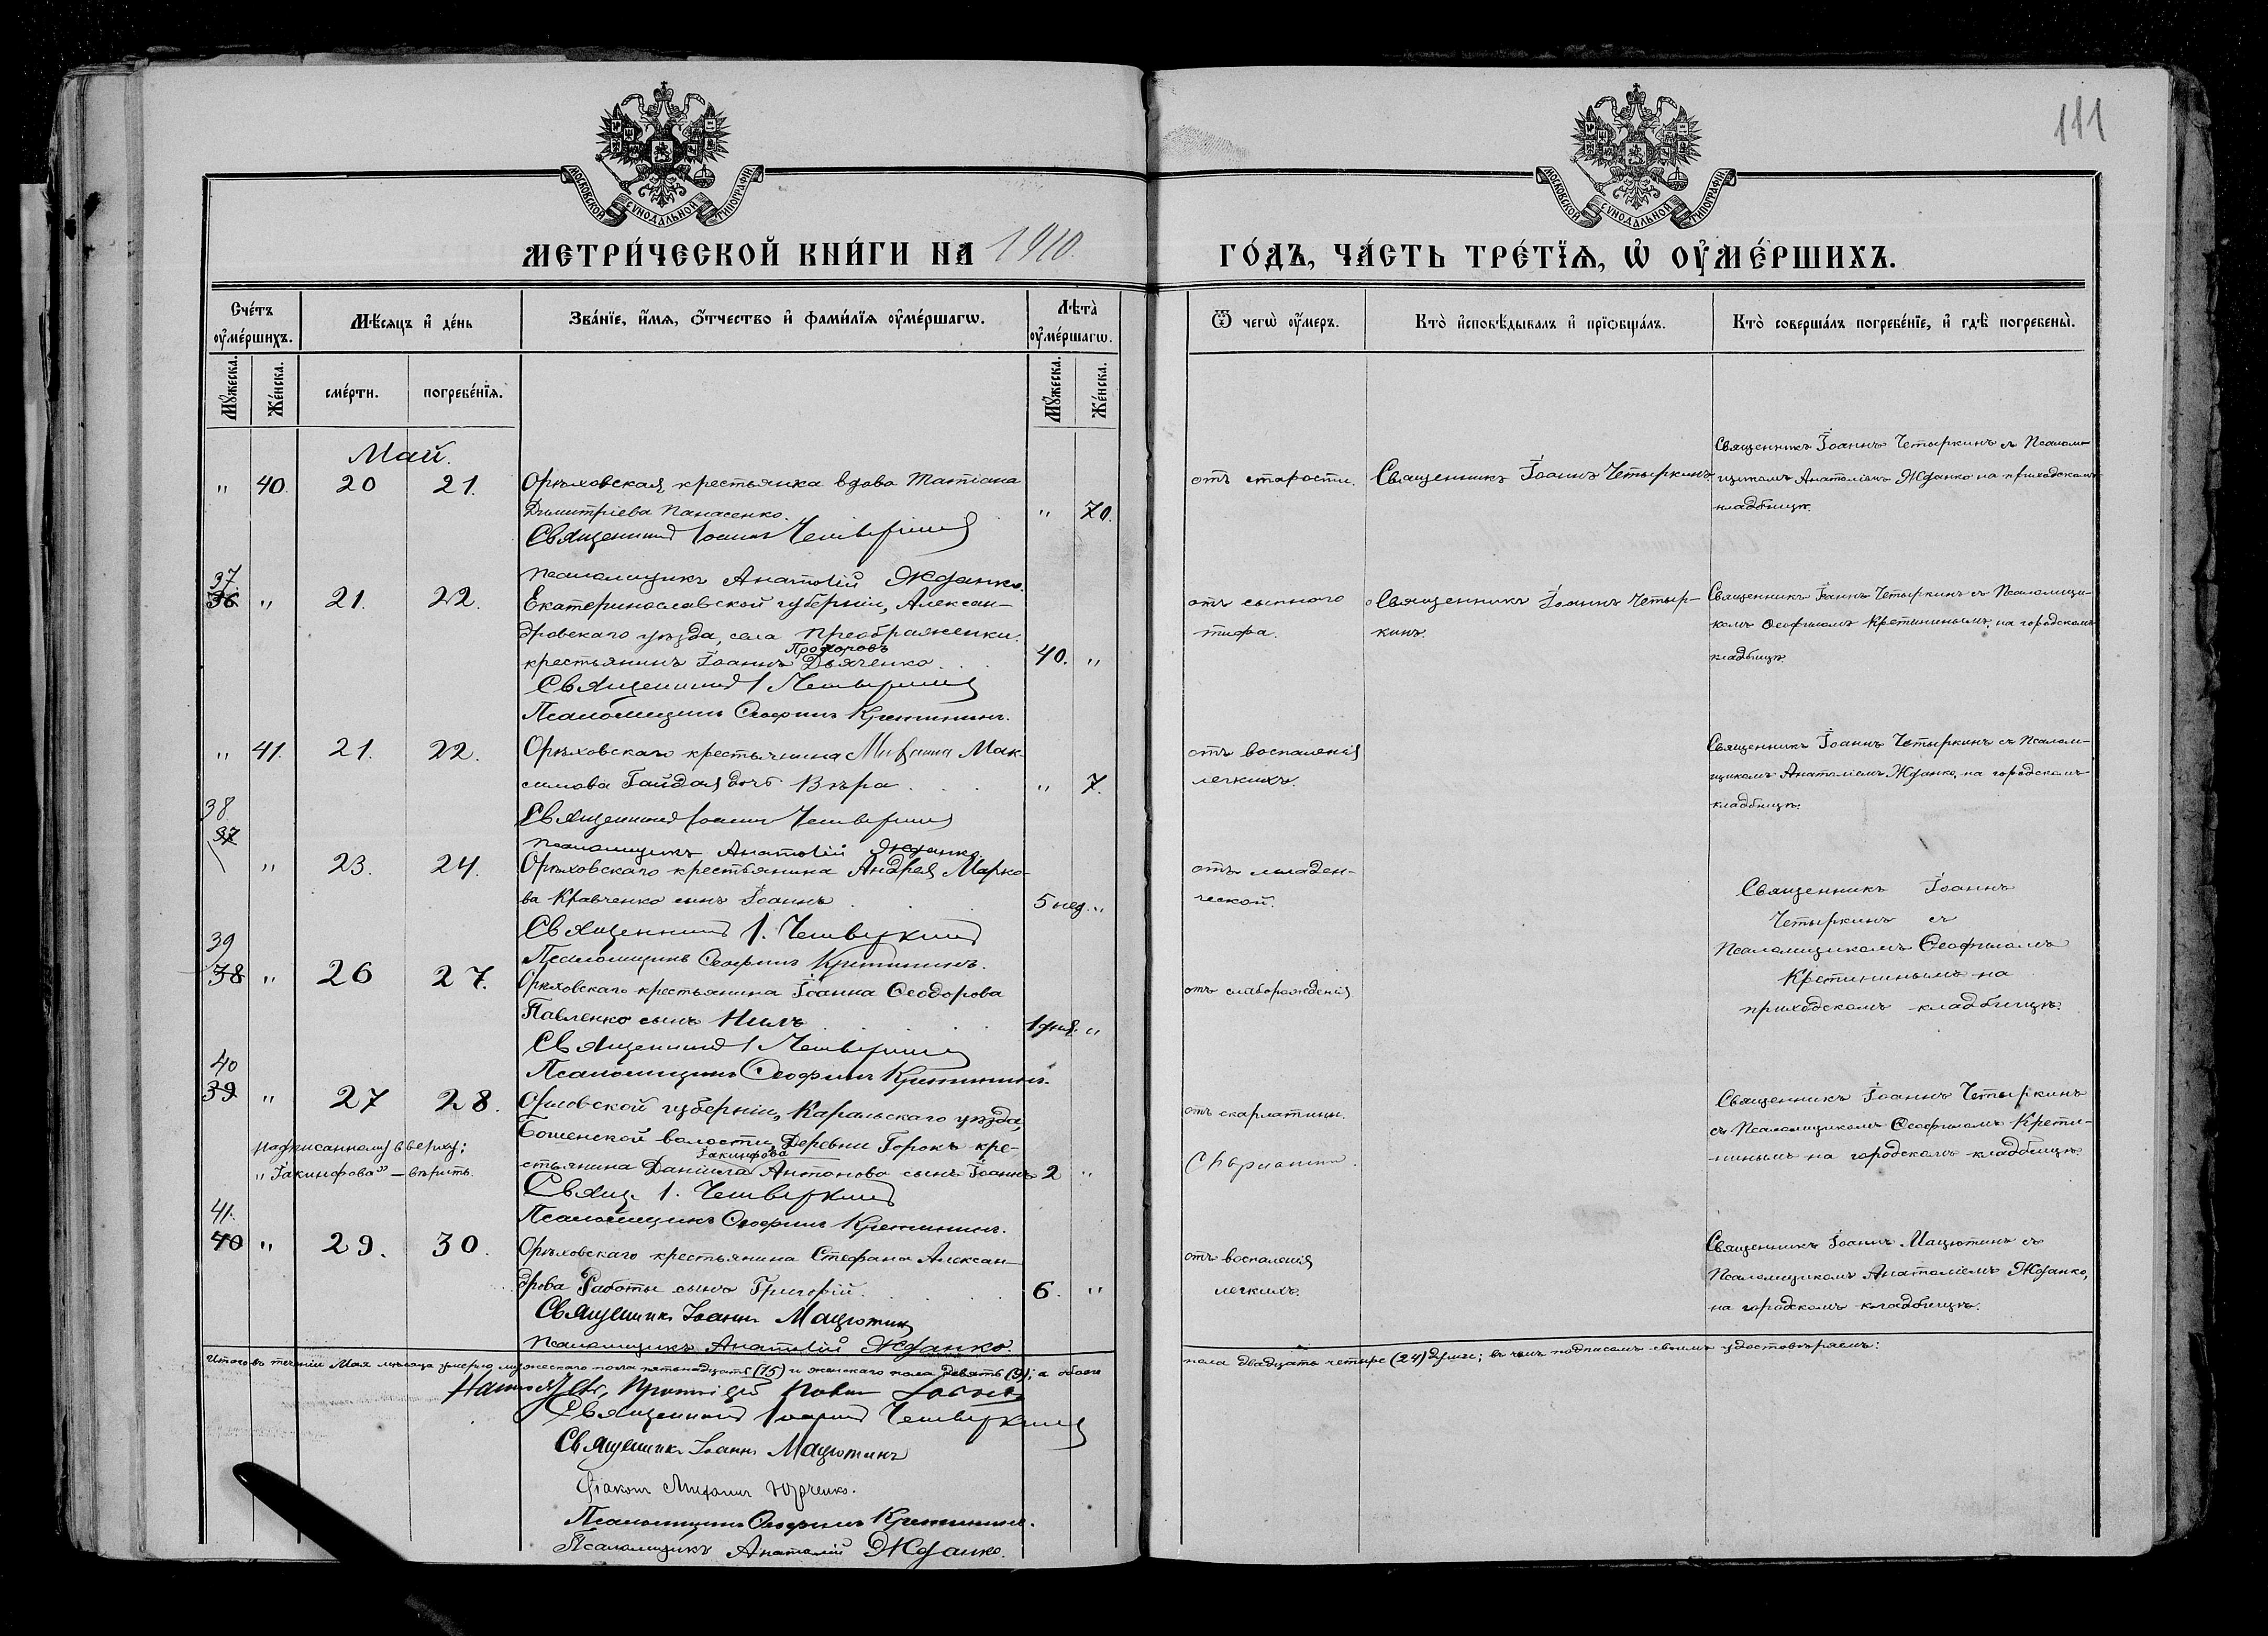 111
МОСКОВСКОЙ СѴНОДАЛЬНОЙ ТИПОГРАФІИ
МОСКОВСКОЙ СѴНОДАЛЬНОЙ ТИПОГРАФІИ
МЕТРИ́ЧЕСКОЙ КНИ́ГИ НА 1910.
ГО́ДЪ, ЧА́СТЬ ТРЕ́ТЇѦ, Ѡ҆ ОУ҆МЕ́РШИХЪ.
Сче́тъ оу҆ме́ршихъ.
Мѣ́сяцъ и҆ де́нь
Зва́нїе, и҆́мѧ, ѻ҆́тчество и҆ фами́лїѧ оу҆ме́ршагѡ.
Лѣ́та оу҆ме́ршагѡ.
Ѿ чегѡ̀ оу҆́меръ.
Кто̀ и҆сповѣ́дывалъ и҆ прїѡбща́лъ.
Кто̀ соверша́лъ погребе́нїе, и҆ гдѣ̀ погребены̀.
Мꙋ́жеска.
Же́нска.
сме́рти.
погребе́нїѧ.
Мꙋ́жеска.
Же́нска.
Май.
" 40. 20 21. Орѣховская крестьянка вдова Татіана
Димитріева Панасенко. " 70.
Священникъ Іоаннъ Четыркинъ
Псаломщикъ Анатолій Жданко.
отъ старости.
Священникъ Іоаннъ Четыркинъ.
Священникъ Іоаннъ Четыркинъ съ Псалом-
щикомъ Анатоліемъ Жданко на приходскомъ
кладбищѣ.
37
36 " 21. 22. Екатеринославской губерніи, Алексан-
дровскаго уѣзда, села Преображенки.
Прохоровъ
крестьянинъ Іоаннъ Дьяченко . . . 40. "
Священникъ І Четыркинъ
Псаломщикъ Ѳеофилъ Кретининъ.
отъ сыпного
тифа.
Священникъ Іоаннъ Четыр-
кинъ.
Священникъ Іоаннъ Четыркинъ съ Псаломщи-
комъ Ѳеофиломъ Кретининымъ, на городскомъ
кладбищѣ.
" 41. 21. 22. Орѣховскаго крестьянина Михаила Мак-
симова Гайдая дочь Вѣра . . . " 7.
Священникъ Іоаннъ Четыркинъ
Псаломщикъ Анатолій Жданко.
отъ воспаленія
легкихъ.
Священникъ Іоаннъ Четыркинъ съ Псалом-
щикомъ Анатоліемъ Жданко, на городскомъ
кладбищѣ.
38
37
" 23. 24. Орѣховскаго крестьянина Андрея Марко-
ва Кравченко сынъ Іоаннъ . . . 5 нед. "
Священникъ І. Четыркинъ
Псаломщикъ Ѳеофилъ Кретининъ.
отъ младен-
ческой.
Священникъ Іоаннъ
Четыркинъ съ
Псаломщикомъ Ѳеофиломъ
Кретининымъ на
приходскомъ кладбищѣ.
39
38 " 26 27. Орѣховскаго крестьянина Іоанна Ѳеодорова
Павленко сынъ Нилъ . . . 1 дня. "
Священникъ І Четыркинъ
Псаломщикъ Ѳеофилъ Кретининъ.
отъ слаборожденія
40
39 " 27 28. Орловской губерніи, Карачьскаго уѣзда,
Бошенской волости, деревни Горокъ кре-
Іакинфова
стьянина Даніила Антонова сынъ Іоаннъ 2 "
Свящ. І. Четыркинъ
Псаломщикъ Ѳеофилъ Кретининъ.
Надписанному вверху:
"Іакинфова" – вѣрить.
отъ скарлатины.
Священникъ Іоаннъ Четыркинъ
съ Псаломщикомъ Ѳеофиломъ Крети-
нинымъ на городскомъ кладбищѣ.
41.
40 " 29. 30. Орѣховскаго крестьянина Стефана Алексан-
дрова Работы сынъ Григорій. . . . 6. "
Священникъ Іоаннъ Мацютинъ
Псаломщикъ Анатолій Жданко.
отъ воспаленія
легкихъ.
Священникъ Іоаннъ Мацютинъ съ
Псаломщикомъ Анатоліемъ Жданко,
на городскомъ кладбищѣ.
Итого въ теченіи Мая мѣсяца умерло мужескаго пола пятьнадцать (15) и женскаго пола девять (9); а обоего
пола двадцать четыре (24) души; въ чемъ подписомъ своимъ удостовѣряемъ:
Протоіерей
Священникъ Іоаннъ Четыркинъ
Священникъ Іоаннъ Мацютинъ
Діаконъ Михаилъ Юрченко.
Псаломщикъ Ѳеофилъ Кретининъ.
Псаломщикъ Анатолій Жданко.